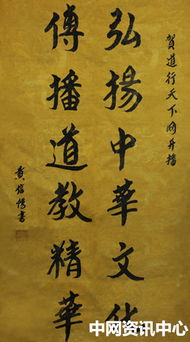 賀道行天下网开播
弘揚中華文化
傳播道教精華
黄信陽書
中网资讯中心